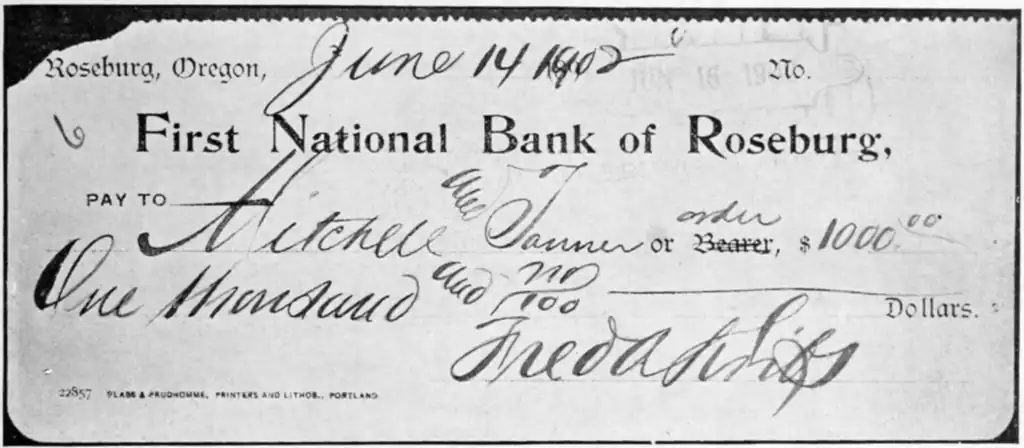 Roseburg, Oregon, June 14 1902 No.
First National Bank of Roseburg,
PAY TO Mitchell and Tanner or order Bearer, $ 1000.00
One thousand and no/100 Dollars.
Fred A
22857 PLASS & PRUDHOMME, PRINTERS AND LITHOS., PORTLAND